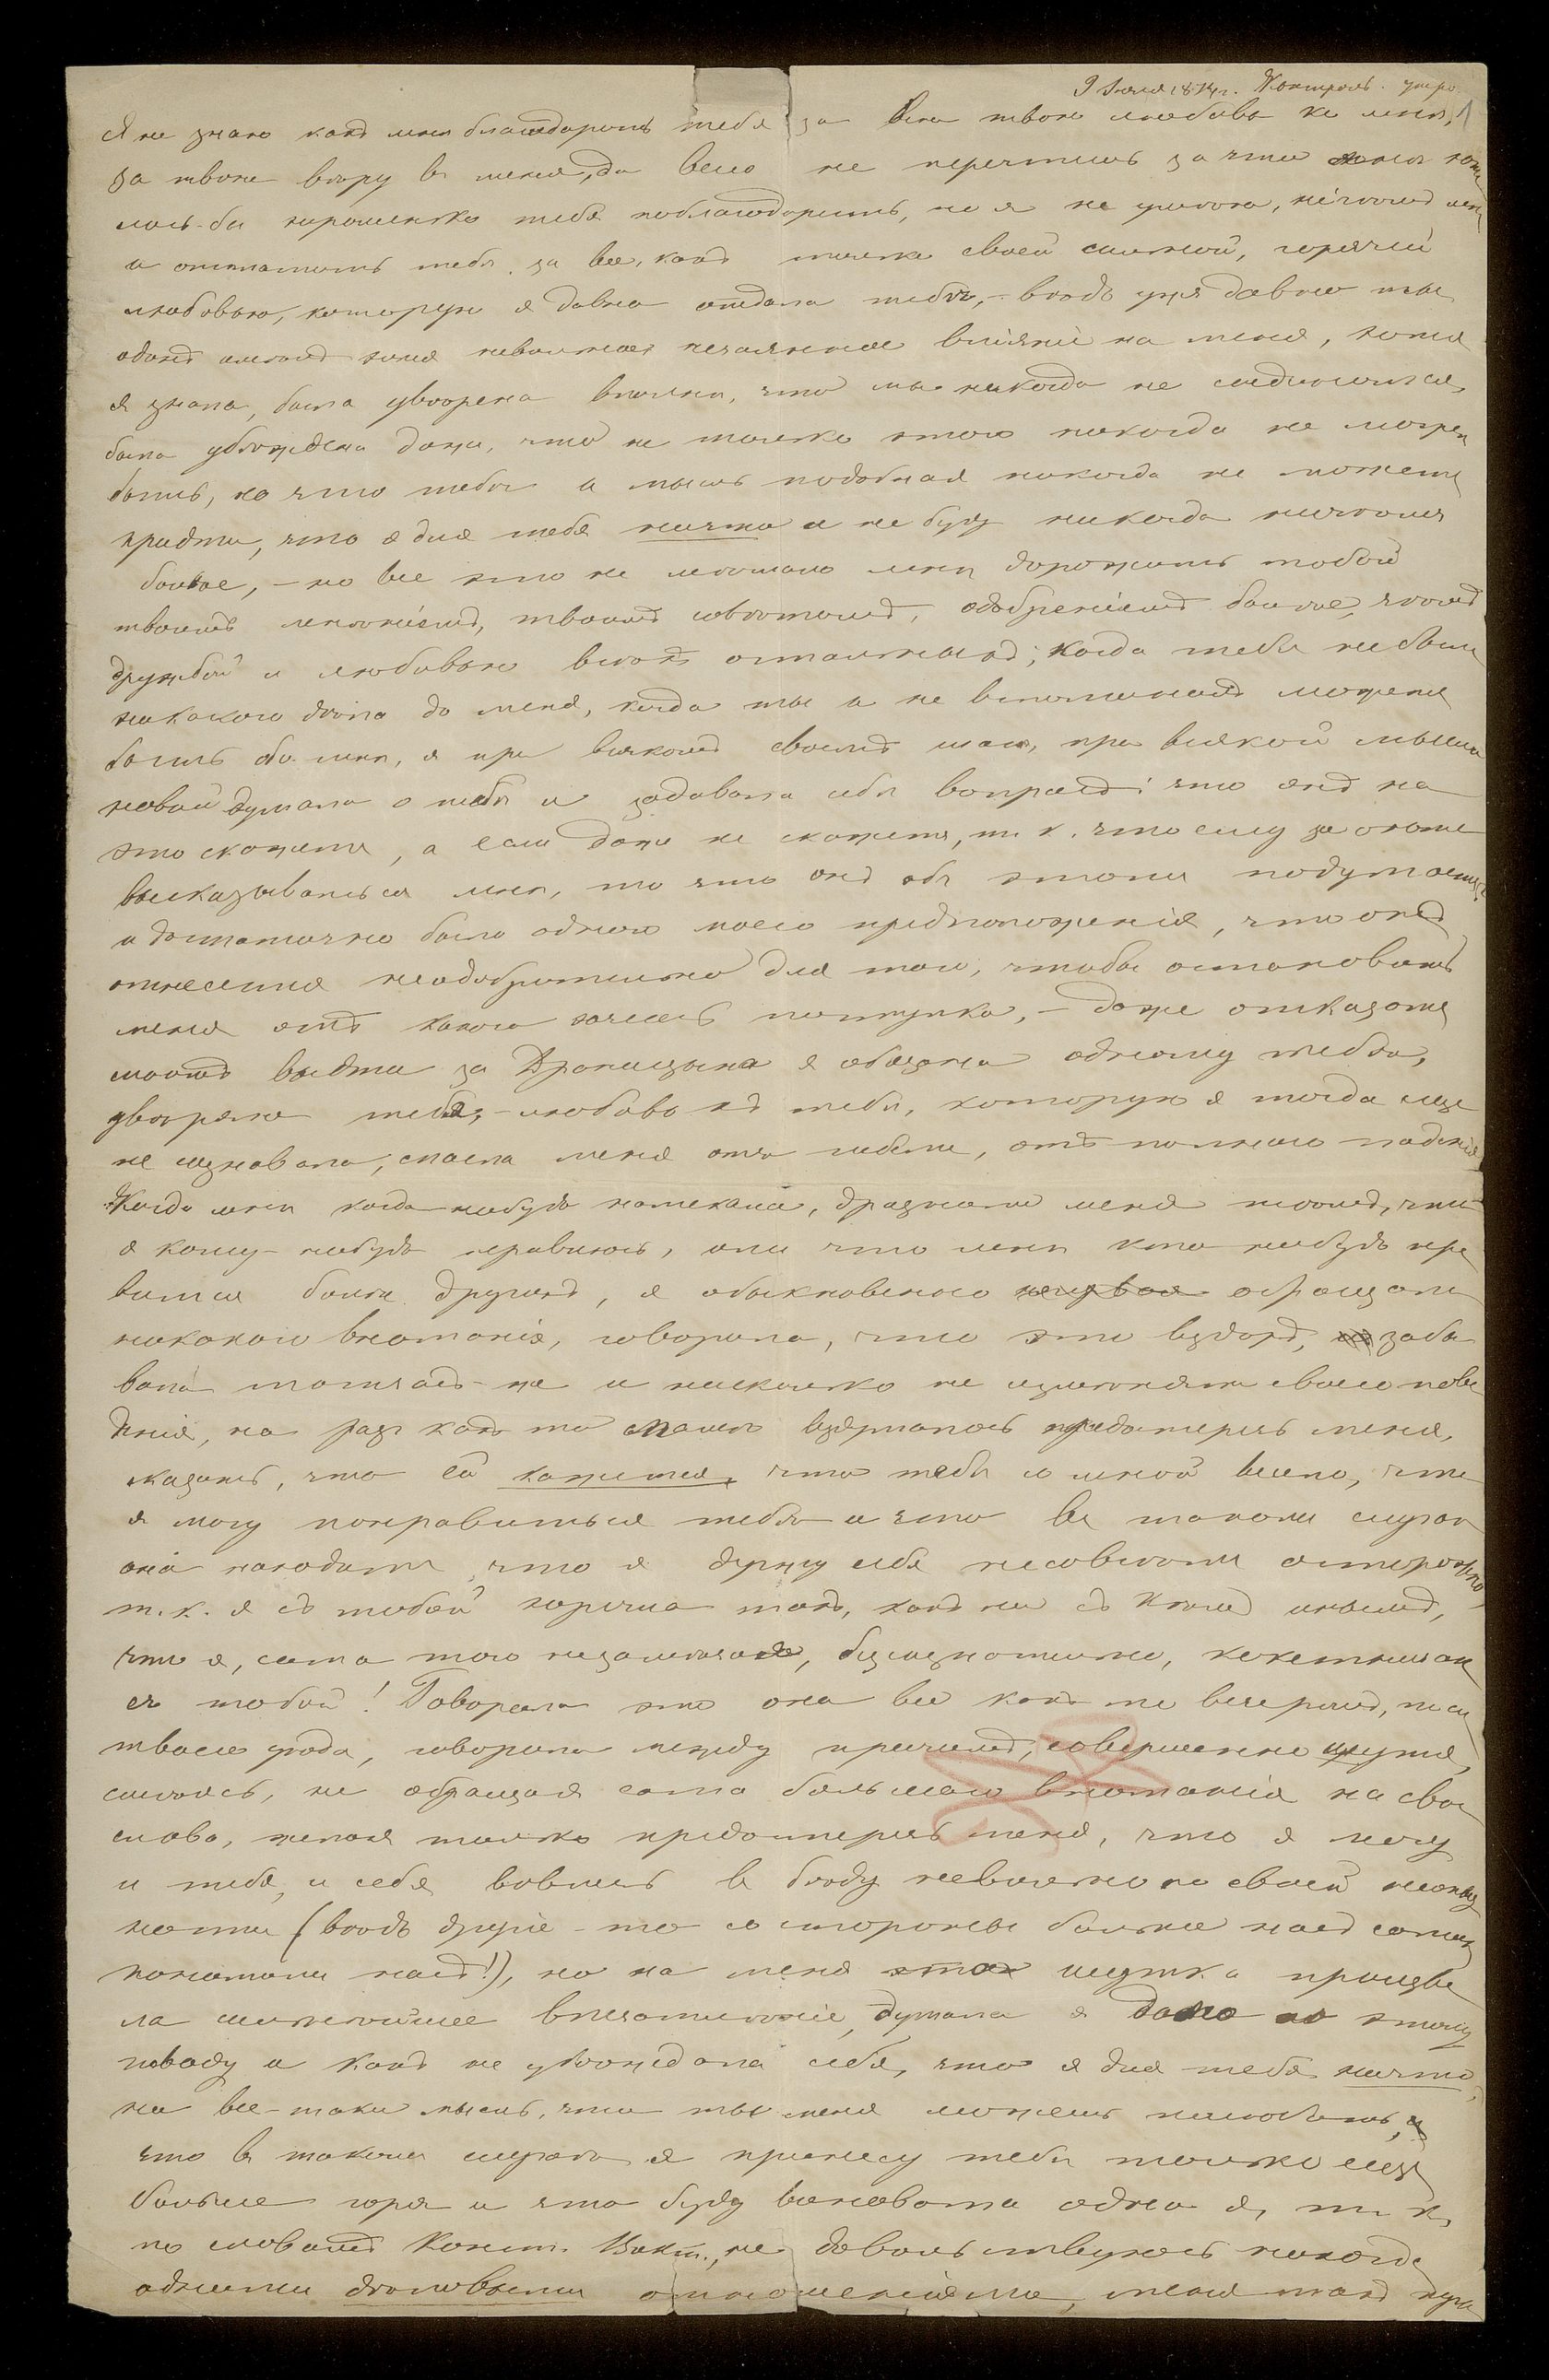 9 Июля 1874 г. Контроль. утро
1
Я не знаю какъ мнѣ благодарить тебя за всю твою любовь ко мнѣ,
за твою вѣру въ меня, да всего не перечтешь за что
лось-бы хорошенько тебя поблагодарить, но я не умѣю, нечѣмъ мнѣ
и отплатить тебѣ за все, какъ только своей сильной, горячей
любовью, которую я давно отдала тебѣ, – вѣдь уже давно ты
одинъ имѣлъ такое невольное вліяніе на меня, хотя
я знала, была увѣрена вполнѣ, что мы никогда не соединимся,
была убѣждена даже, что не только этого никогда не можетъ
быть, но что тебѣ и мысль подобная никогда не можетъ
прийти, что я для тебя ничто и не буду никогда ничѣмъ
более, – но все это не мѣшало мнѣ дорожить тобой
твоимъ мнѣніемъ, твоимъ совѣтомъ, одобреніемъ более, чѣмъ
дружбой и любовью всѣхъ остальныхъ; когда тебѣ не было
никакого дѣла до меня, когда ты и не вспоминалъ можетъ
быть обо мнѣ, я при всякомъ своемъ шагѣ, при всякой мысли
новой думала о тебѣ и задавала себѣ вопросъ: что онъ на
это скажетъ, а если даже не скажетъ, т. к. что ему за охота
высказываться мнѣ, то что онъ объ этомъ подумаетъ?
и достаточно было одного моего предположенія, что онъ
отнесется неодобрительно для того, чтобы остановить
меня отъ какого хочешь поступка, – даже отказомъ
моимъ выдти за я обязана одному тебѣ,
увѣряю тебя, – любовь къ тебѣ, которую я тогда еще
не сознавала, спасла меня отъ гибели, отъ полнаго паденія
Когда мнѣ когда-нибудь намекали, дразнили меня тѣмъ, что
я кому-нибудь нравлюсь, или что мнѣ кто нибудь нра
вится болѣе другихъ, я обыкновенно обращала
никакого вниманія, говорила, что это вздоръ, забы
вала тотчасъ-же и нисколько не измѣняла своего пове
денія, но разъ какъ то вздумалось предостеречь меня,
сказать, что ей кажется, что тебѣ со мной весело, что
я могу понравиться тебѣ и что въ такомъ случаѣ
она находитъ, что я держу себя не совсѣмъ осторожно,
т. к. я съ тобой горячѣе такъ, какъ ни съ кѣмъ инымъ,
что я, сама того не замѣчая, безсознательно, кокетничаю
съ тобой! Говорила это она все какъ то вечеромъ, послѣ
твоего ухода, говорила между прочимъ, совершенно шутя,
смѣясь, не обращая сама большаго вниманія на свои
слова, желая только предостеречь меня, что я могу
и тебя, и себя ввести въ бѣду невольно по своей неопыт
ности (вѣдь другіе-то со стороны больше насъ самихъ
понимали насъ!), но на меня эта шутка произве
ла сильнѣйшее впечатлѣніе, думала я даже по этому
поводу и какъ не убѣждала себя, что я для тебя ничто,
но все-таки мысль, что ты меня можешь полюбить, и
что въ такомъ случаѣ я принесу тебѣ только еще
больше горя и что буду виновата одна я, т. к.
по словамъ Конст. Викт., не довольствуюсь никогда
одними дѣловыми отношеніями, меня такъ